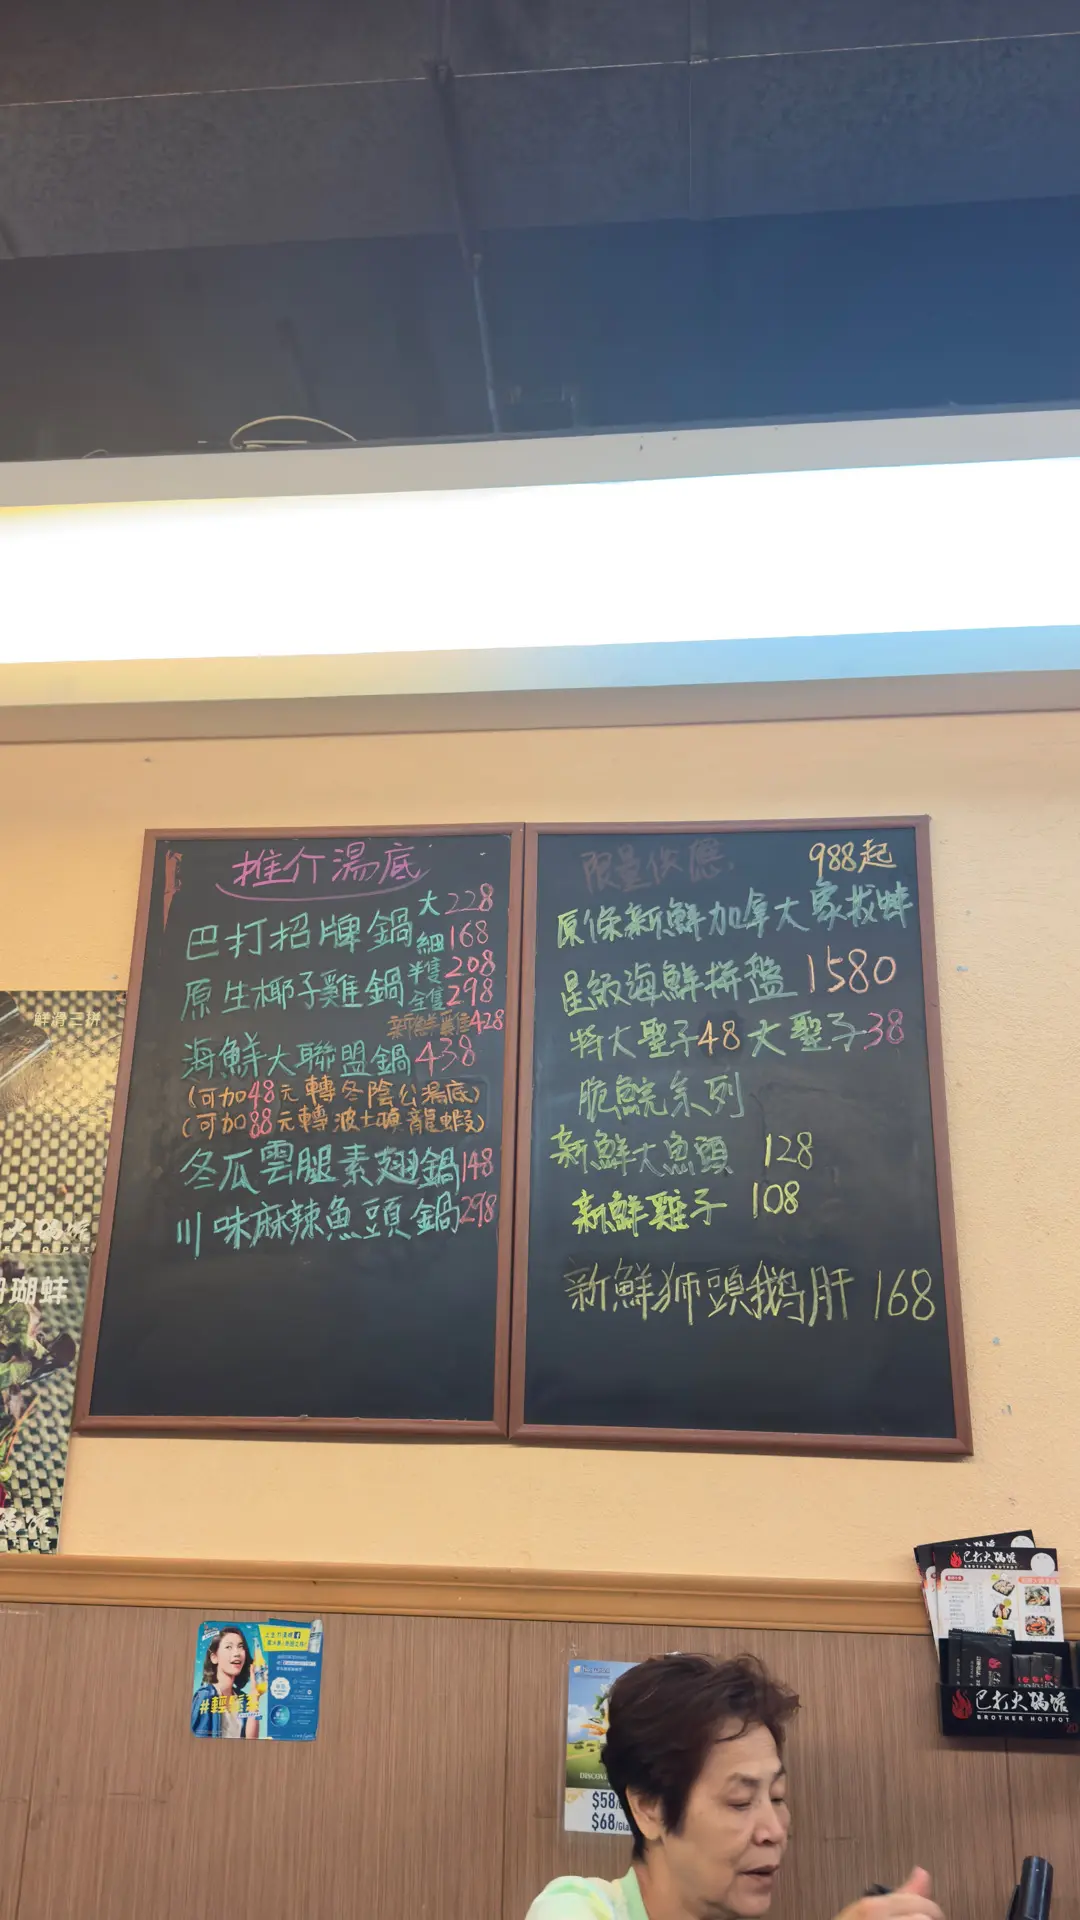 推介湯底
巴打招牌鍋 大228
細168
原生椰子雞鍋 半隻208
全隻298
新鮮雞428
海鮮大聯盟鍋 438
(可加48元轉冬陰公湯底)
(可加88元轉波士頓龍蝦)
冬瓜雲腿素翅鍋148
川味麻辣魚頭鍋298
限量供應
988起
原條新鮮加拿大象拔蚌
星級海鮮拼盤 1580
特大聖子48 大聖子38
脆鯇系列
新鮮大魚頭 128
新鮮雞子 108
新鮮狮頭鵝肝 168
鮮滑三拼
瑚蚌
#輕鬆
DISCOV
$58/
$68/Gla
巴打火鍋館
BROTHER HOTPOT
巴打火鍋館
BROTHER HOTPOT